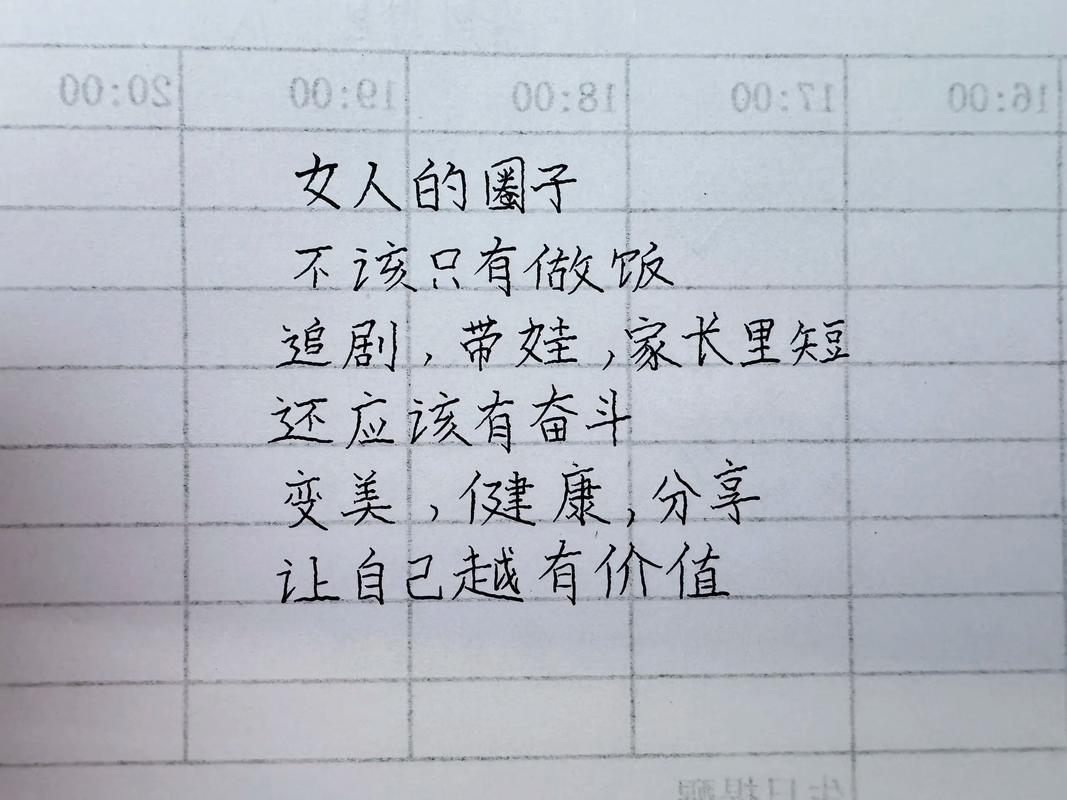 20:00 19:00 18:00 17:00 16:00
女人的圈子
不该只有做饭
追剧，带娃，家长里短
还应该有奋斗
变美，健康，分享
让自己越有价值
生日提醒